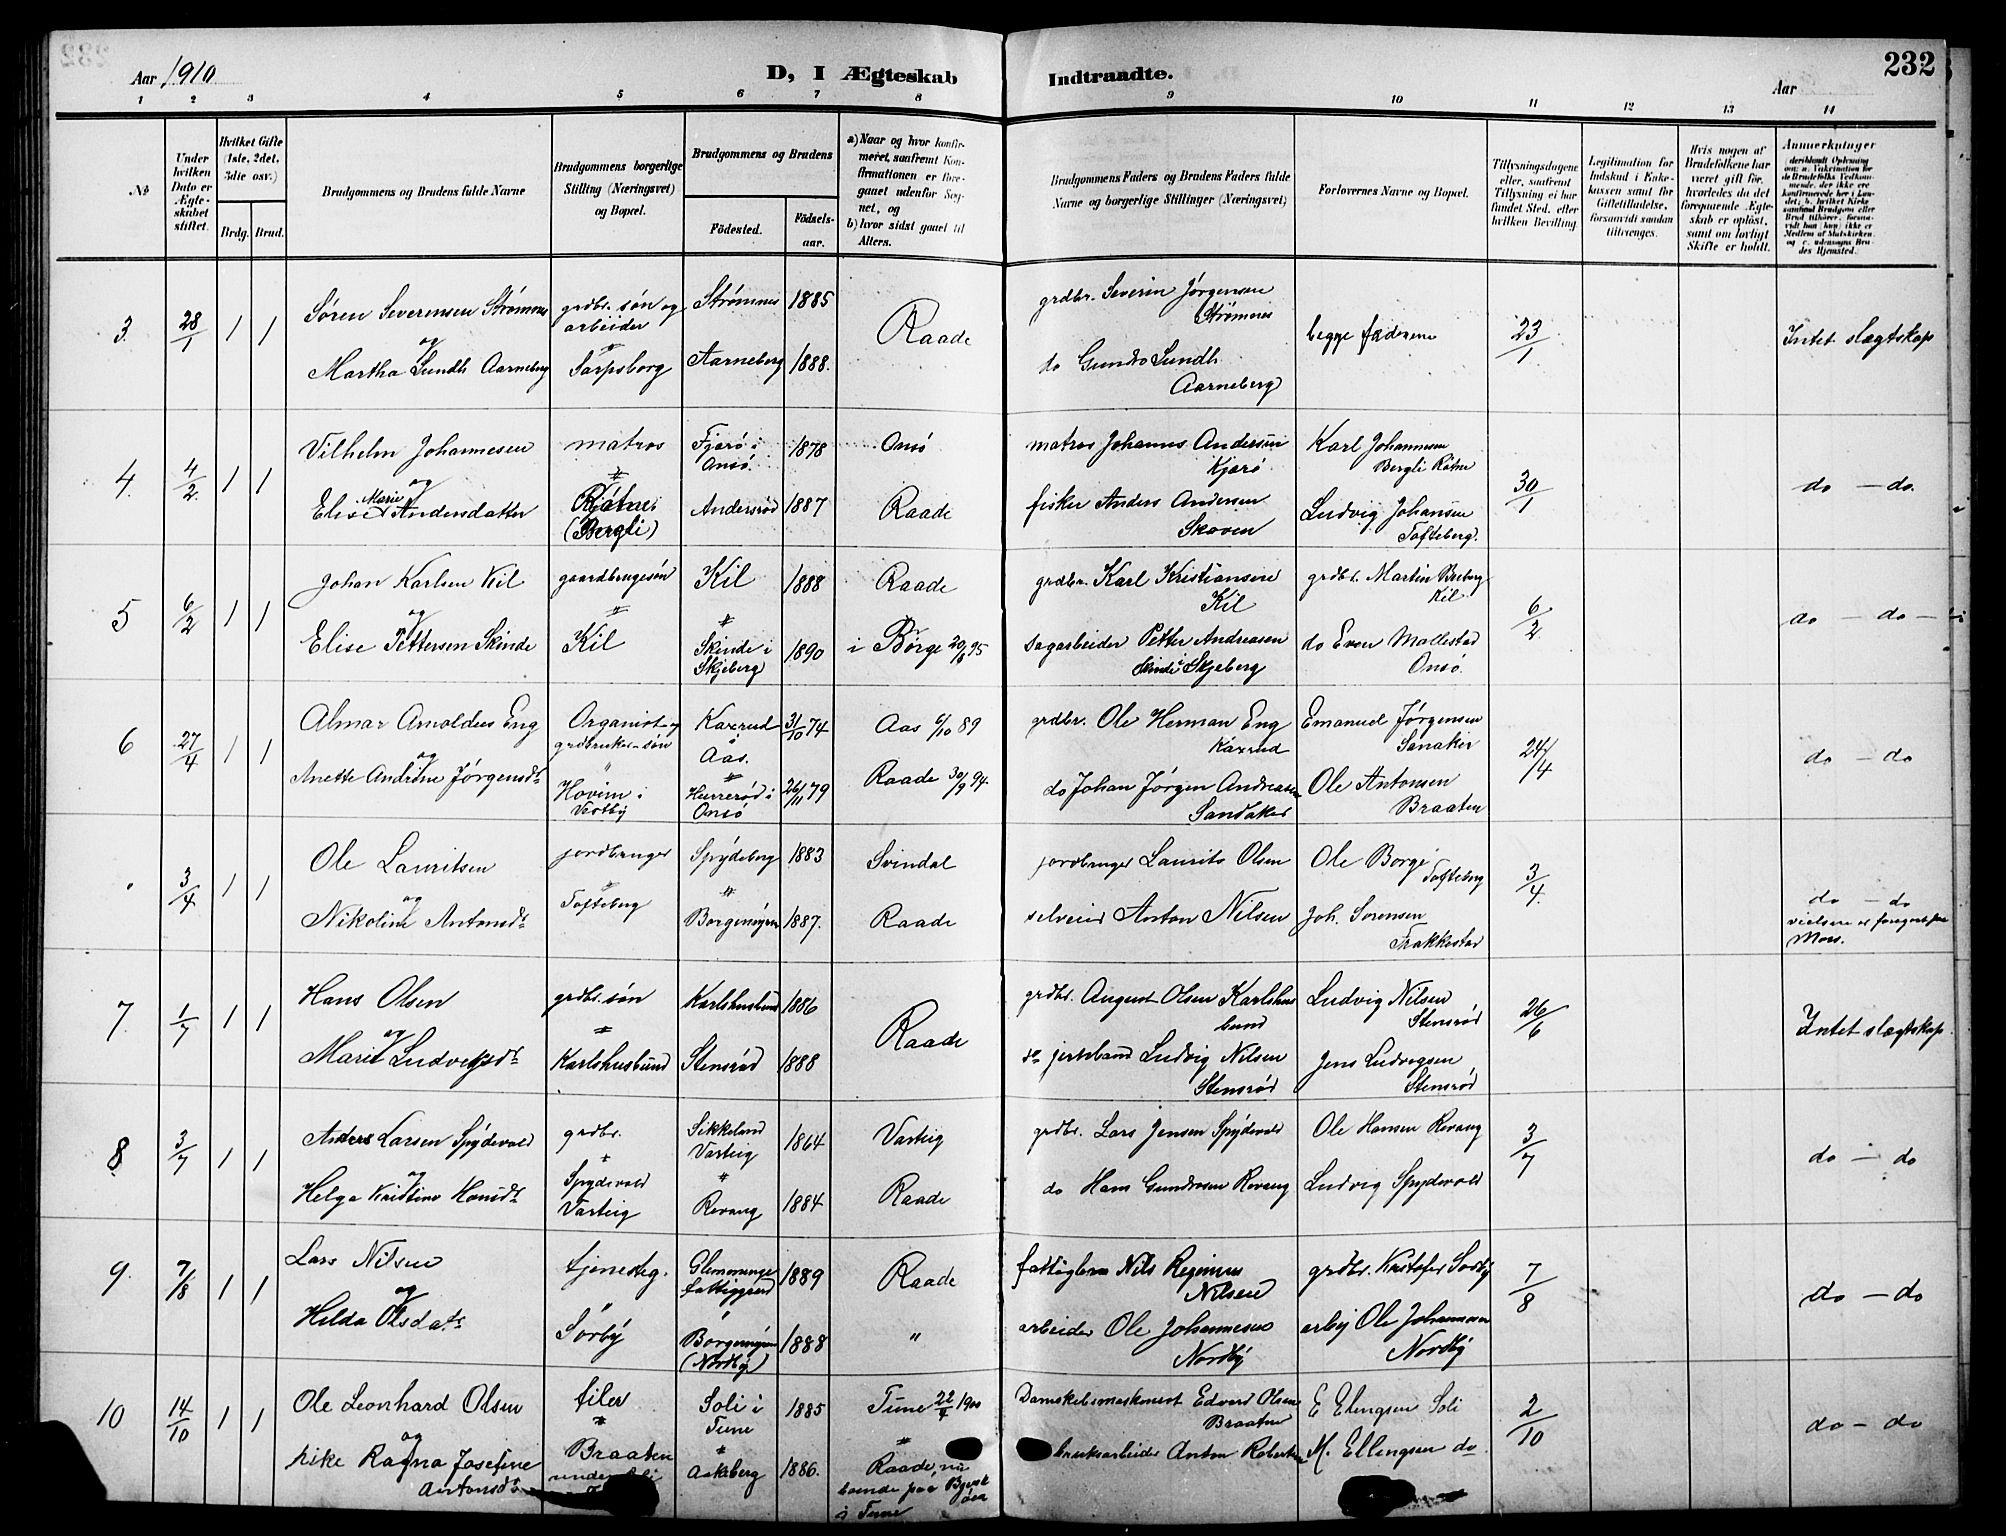 232
Aar 1910
D, I Ægteskab
Indtraadte.
Aar
1 2 3 4 5 6 7 8 9 10 11 12 13 14
No
Under hvilken Dato er Ægteskabet stiftet.
Hvilket Gifte (1ste, 2det, 3die osv.)
Brdg. Brud.
Brudgommens og Brudens fulde Navne
Brudgommens borgerlige Stilling (Næringsvei) og Bopæl.
Brudgommens og Brudens
Födested.
Födselsaar.
a) Naar og hvor konfirmeret, saafremt Konfirmationen er foregaaet udenfor Sognet, og
b) hvor sidst gaaet til Alters.
Brudgommens Faders og Brudens Faders fulde Navne og borgerlige Stillinger (Næringsvei)
Forlovernes Navne og Bopæl.
Tillysningsdagene eller, saafremt Tillysning ei har fundet Sted, efter hvilken Bevilling.
Legitimation for Indskud i Enkekassen samt for Giftetilladelse, forsaavidt saadan tiltrænges.
Hvis nogen af Brudefolkene har været gift før, hvorledes da det foregaaende Ægteskab er oplöst, samt om lovligt Skifte er holdt.
Anmerkninger
3. 28/1 1 1
Søren Severensen Strømnes
og
Martha Sundh Aarneberg
grdbr. søn og
arbeider
Sarpsborg
Strømnes 1885
Aarneberg 1888.
Raade
grdbr. Severin Jørgensen
Strømnes
do Gundro Sundh
Aarneberg
begge fædrene
23/1
Intet slægtskap
4. 4/2 1 1
Vilhelm Johannesen
og
Elise Marie Andersdatter
matros
(Bergli)
i
Onsö 1878
Andersrød 1887
Onsö
Raade
matros Johannes Andersen
Kjærö
fisker Anders Andersen
Skoven
Karl Johannesen
Bergli
Ludvig Johansen
Tofteberg.
30/1
do – do.
5 6/2 1 1
Johan Karlsen Kil
og
Elise Pettersen Skinde
gaardbrugesøn
Kil
Kil 1888
Skinde i
Skjeberg 1890
Raade
i Børge
grdbr. Karl Kristiansen
Kil
sagarbeider Petter Andreasen
Skinde i Skjeberg
grdbr. Martin
Kil
do Even Mollestad
Onsö.
6/2
do – do –
6 27/4 1 1
Almar Arnoldus Eng
og
Anette Andrine Jørgensdt
Organist og
grdbruker-søn
i
Vestby
Kaxrud 31/10 74
Aas.
i 26/11 79
Onsö
Aas 6/10 89
Raade 30/9 94.
grdbr. Ole Herman Eng
Kaxrud
do Johan Jørgen Andreasen
Sandaker
Emanuel Jørgensen
Ole Antonsen
Braaten
24/4
do – do
3/4 1 1
Ole Lauritsen
og
Nikoline Antonsdt
jordbruger
Tofteberg
Spydeberg 1883
Borgemyren 1887.
Svindal
Raade
jordbruger Laurits Olsen
selveier Anton Nilsen
Ole Borge
Tofteberg
Joh. Sorensen
3/4.
do – do
vielsen er foregaat paa
Moss.
7. 1/7 1 1
Hans Olsen
og
Marie Ludvigsdt
grdbr. søn
Karlshusbund
Karlshusbund 1886
Stensrød 1888
Raade
grdbr. August Olsen Karlshus
bund
Ludvig Nilsen
Stensrød
Ludvig Nilsen
Stensrød
Jens Ludvigsen
Stensrød
26/6
Intet slægtskap.
8. 3/7 1 1
Anders Larsen Spydevold
og
Helga Kristine Hansdt
grdbr.
Spydevold
Varteig
Sikkeland
Varteig 1864
Revaug 1884
Varteig
Raade
grdbr. Lars Jensen Spydevold
do Hans Gundersen Revaug
Ole Hansen Revaug
Ludvig Spydevold
3/7
do – do
9. 7/8 1 1
Lars Nilsen
og
Hilda Olsdatr
tjenesteg.
Sørby
1889
Borgemyren 1888
(Nordby)
Raade
"
Nils
Nilsen
arbeider Ole Johannesen
Nordby
grdbr. Kristofer Sørby
arbej Ole Johannesen
Nordby
7/8
do – do
10 14/10 1 1
Ole Leonhard Olsen
og
Ragna Josefine
Antonsdt
filer
Braaten
under Soli
Soli i
Tune 1885
Aakeberg 1886.
Tune 22/4 1900
Raade, nu
boende paa
i Tune
Edvard Olsen
Braaten
bruksarbeider Anton
E Elingsen Soli
M. Ellingsen do
2/10
do – do